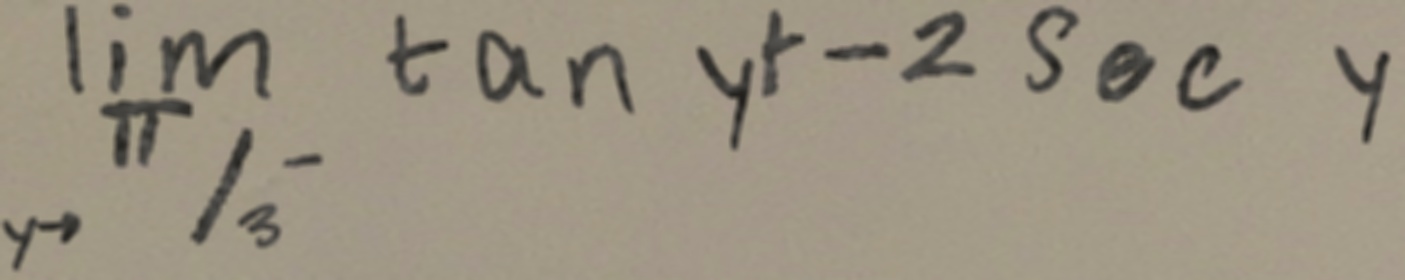 lim_{y→π/3^-} tan y + -2 sec y